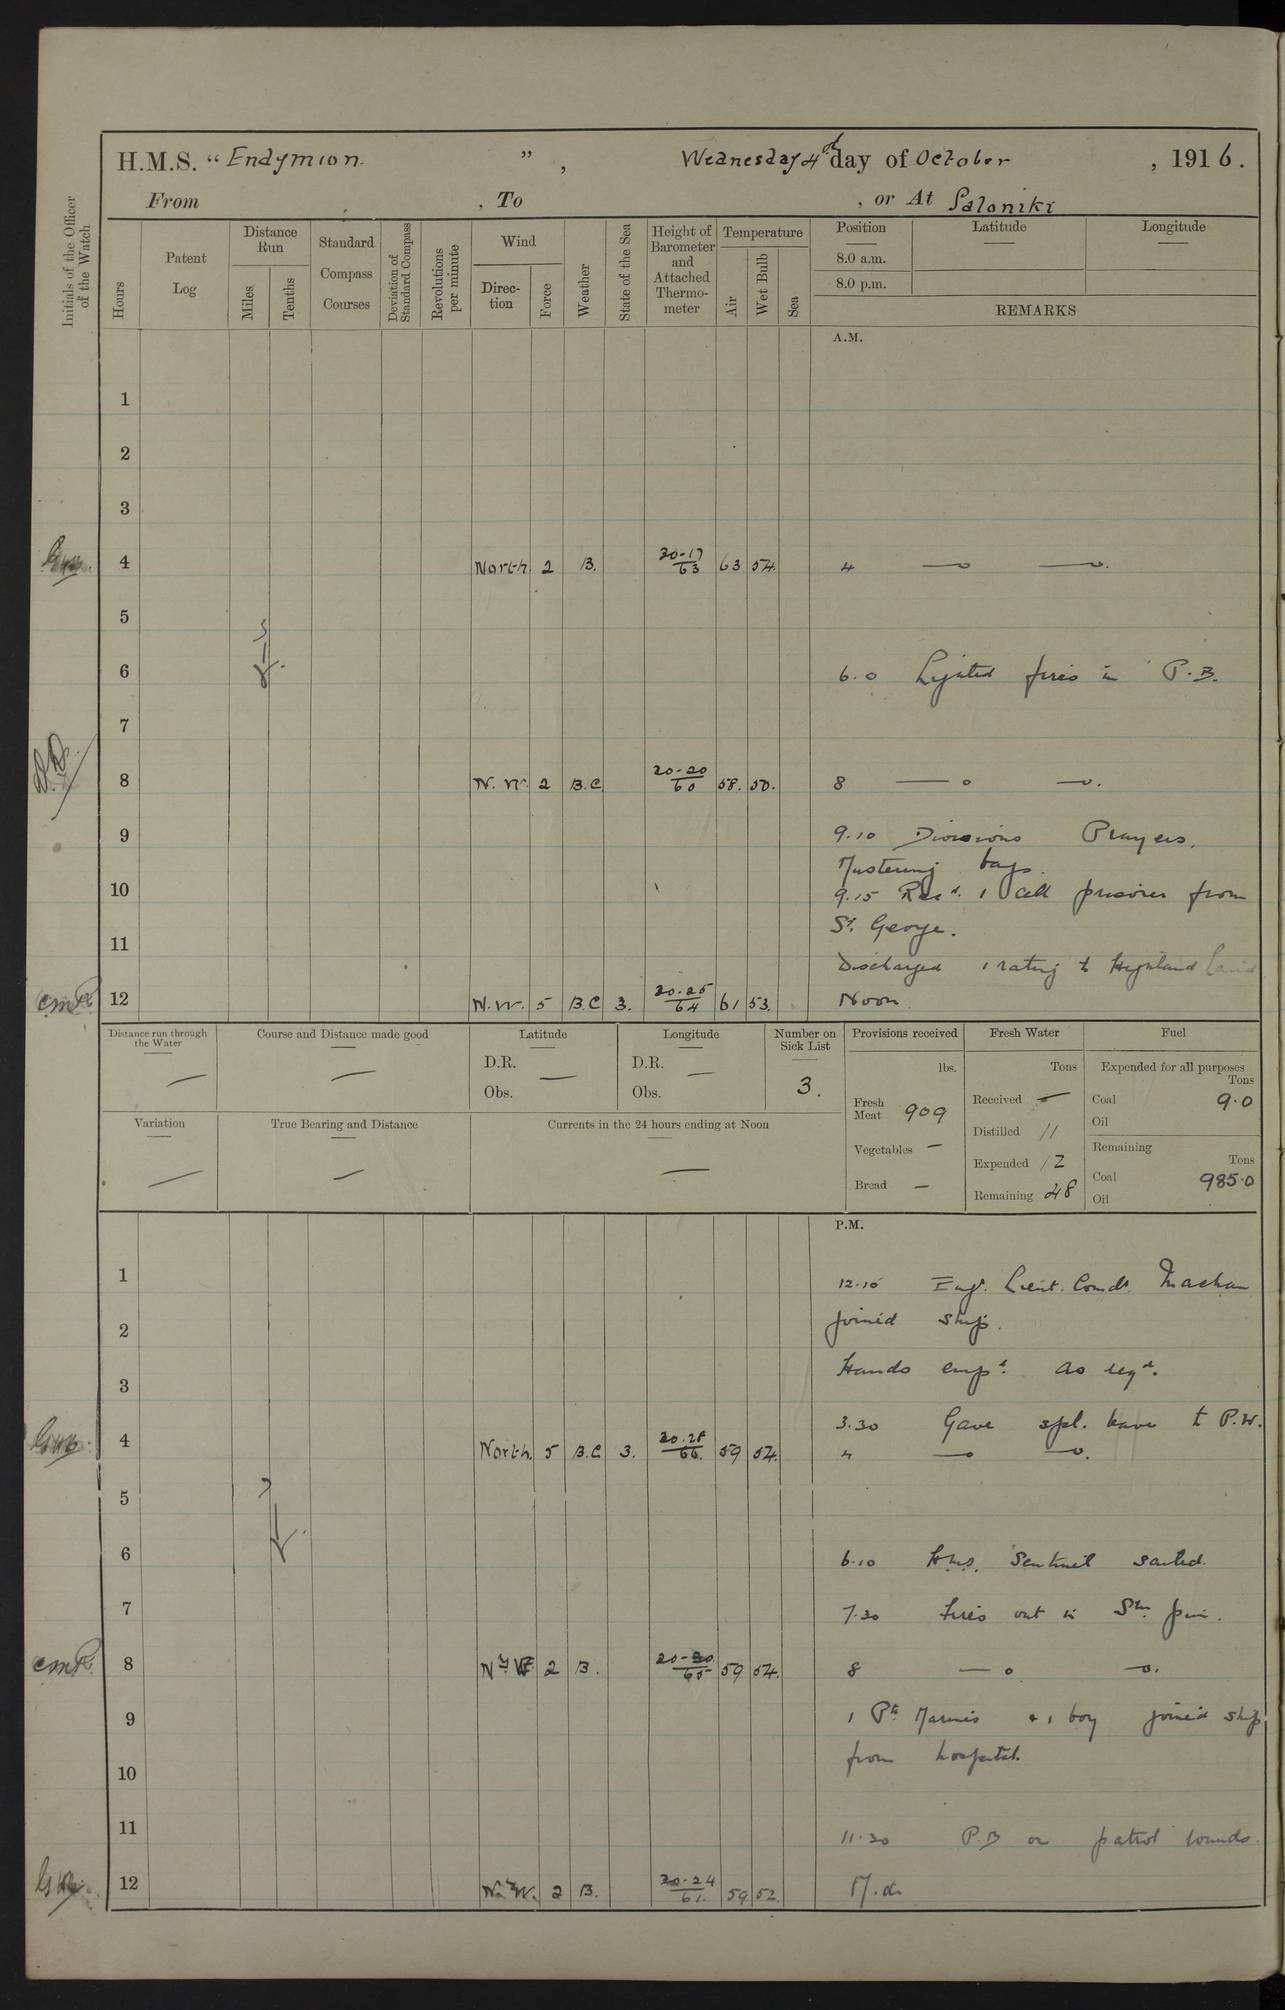 H.M.S. “ Endymion ” , Wednesday 4th day of October , 1916.
From , To , or At Saloniki
Initials of the Officer of the Watch
Hours
Patent Log
Distance Run
Miles
Tenths
Standard Compass Courses
Deviation of Standard Compass
Revolutions per minute
Wind
Direc-tion
Force
Weather
State of the Sea
Height of Barometer and Attached Thermo-meter
Temperature
Air
Wet Bulb
Sea
Position Latitude Longitude
8.0 a.m.
8.0 p.m.
REMARKS
A.M.
1
2
3
4 North 2 B. 30-17/63 63 54 4
5
6 6.0 Lighted fires in P.B.
7
8 N.W. 2 B.C. 30-20/60 58. 50. 8
9 9.10 Divisions Prayers.
Mustering bags.
10 9.15 Recd. 1 Cell prisoner from
St. George.
11
Discharged 1 rating to Highland Laird
cmR 12 N.W. 5 B.C 3. 30.25/64 61 53. Noon
Distance run through the Water
Course and Distance made good
Latitude
D.R.
Obs.
Longitude
D.R.
Obs.
Number on Sick List
3.
Provisions received
lbs.
Fresh Meat 909
Vegetables —
Bread —
Fresh Water
Tons
Received —
Distilled 11
Expended 12
Remaining 48
Fuel
Expended for all purposes
Tons
Coal 9.0
Oil
Remaining
Tons
Coal 985.0
Oil
Variation
True Bearing and Distance
Currents in the 24 hours ending at Noon
P.M.
1 12.10 Engr. Lieut. Comdr. Machan
2 joined ship.
3 Hands empd. as reqd.
3.30 Gave spl. leave to P.W.
4 North. 5 B.C 3. 59 54. 4
5
6 6.10 H.M.S. Sentinel sailed.
7 7.30 Fires out in Stm pin.
cmR 8 2 B. 30-30/65 59 54. 8
9 1 Pte Marines & 1 boy joined ship
from hospital.
10
11 11.30 P.B on patrol rounds.
12 NyW. 2 B. 30-24/61. 59 52. M.d.